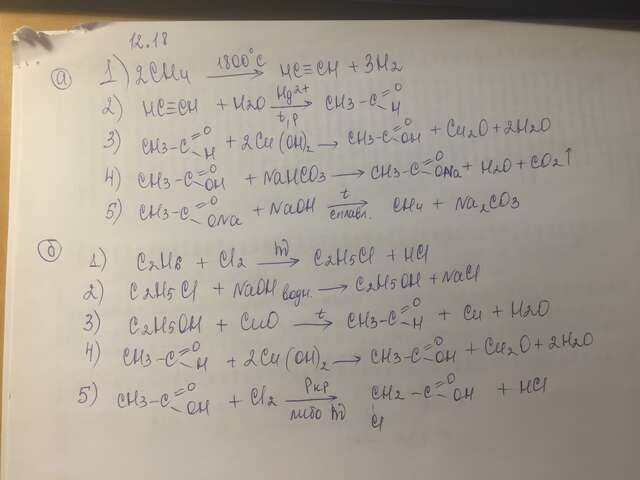 12.18
а) 1) 2CH4 1800°C → HC≡CH + 3H2
2) HC≡CH + H2O Hg2+ → t, p CH3-C=O H
3) CH3-C=O H + 2Cu(OH)2 → CH3-C=O OH + Cu2O + 2H2O
4) CH3-C=O OH + NaHCO3 → CH3-C=O ONa + H2O + CO2↑
5) CH3-C=O ONa + NaOH t → сплавл. CH4 + Na2CO3
б) 1) C2H6 + Cl2 hν → C2H5Cl + HCl
2) C2H5Cl + NaOH водн. → C2H5OH + NaCl
3) C2H5OH + CuO t → CH3-C=O H + Cu + H2O
4) CH3-C=O H + 2Cu(OH)2 → CH3-C=O OH + Cu2O + 2H2O
5) CH3-C=O OH + Cl2 Pкр → либо hν CH2-C=O OH + HCl
Cl